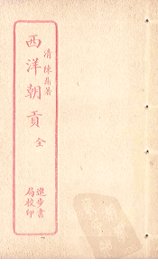 清陳鼎著
西洋朝貢
全
進步書局校印